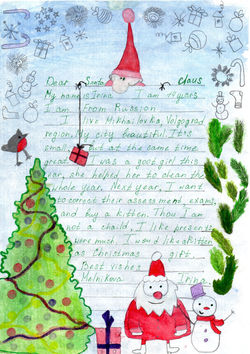 Dear Santa Claus
My name is Irina I am 14 years
I am From Russian
I live Mikhailovka, Volgograd
region. My city beautiful. It is
small, but at the same time
great. I was a goot girl this
year, she helped her to clean the
whole year. Next year, I want
to correct their assessment, exams,
and buy a kitten. Thou I am
not a child, I like presents
very much. I would like a kitten
as Christmas gift.
Best wishes
Melnikova Irina